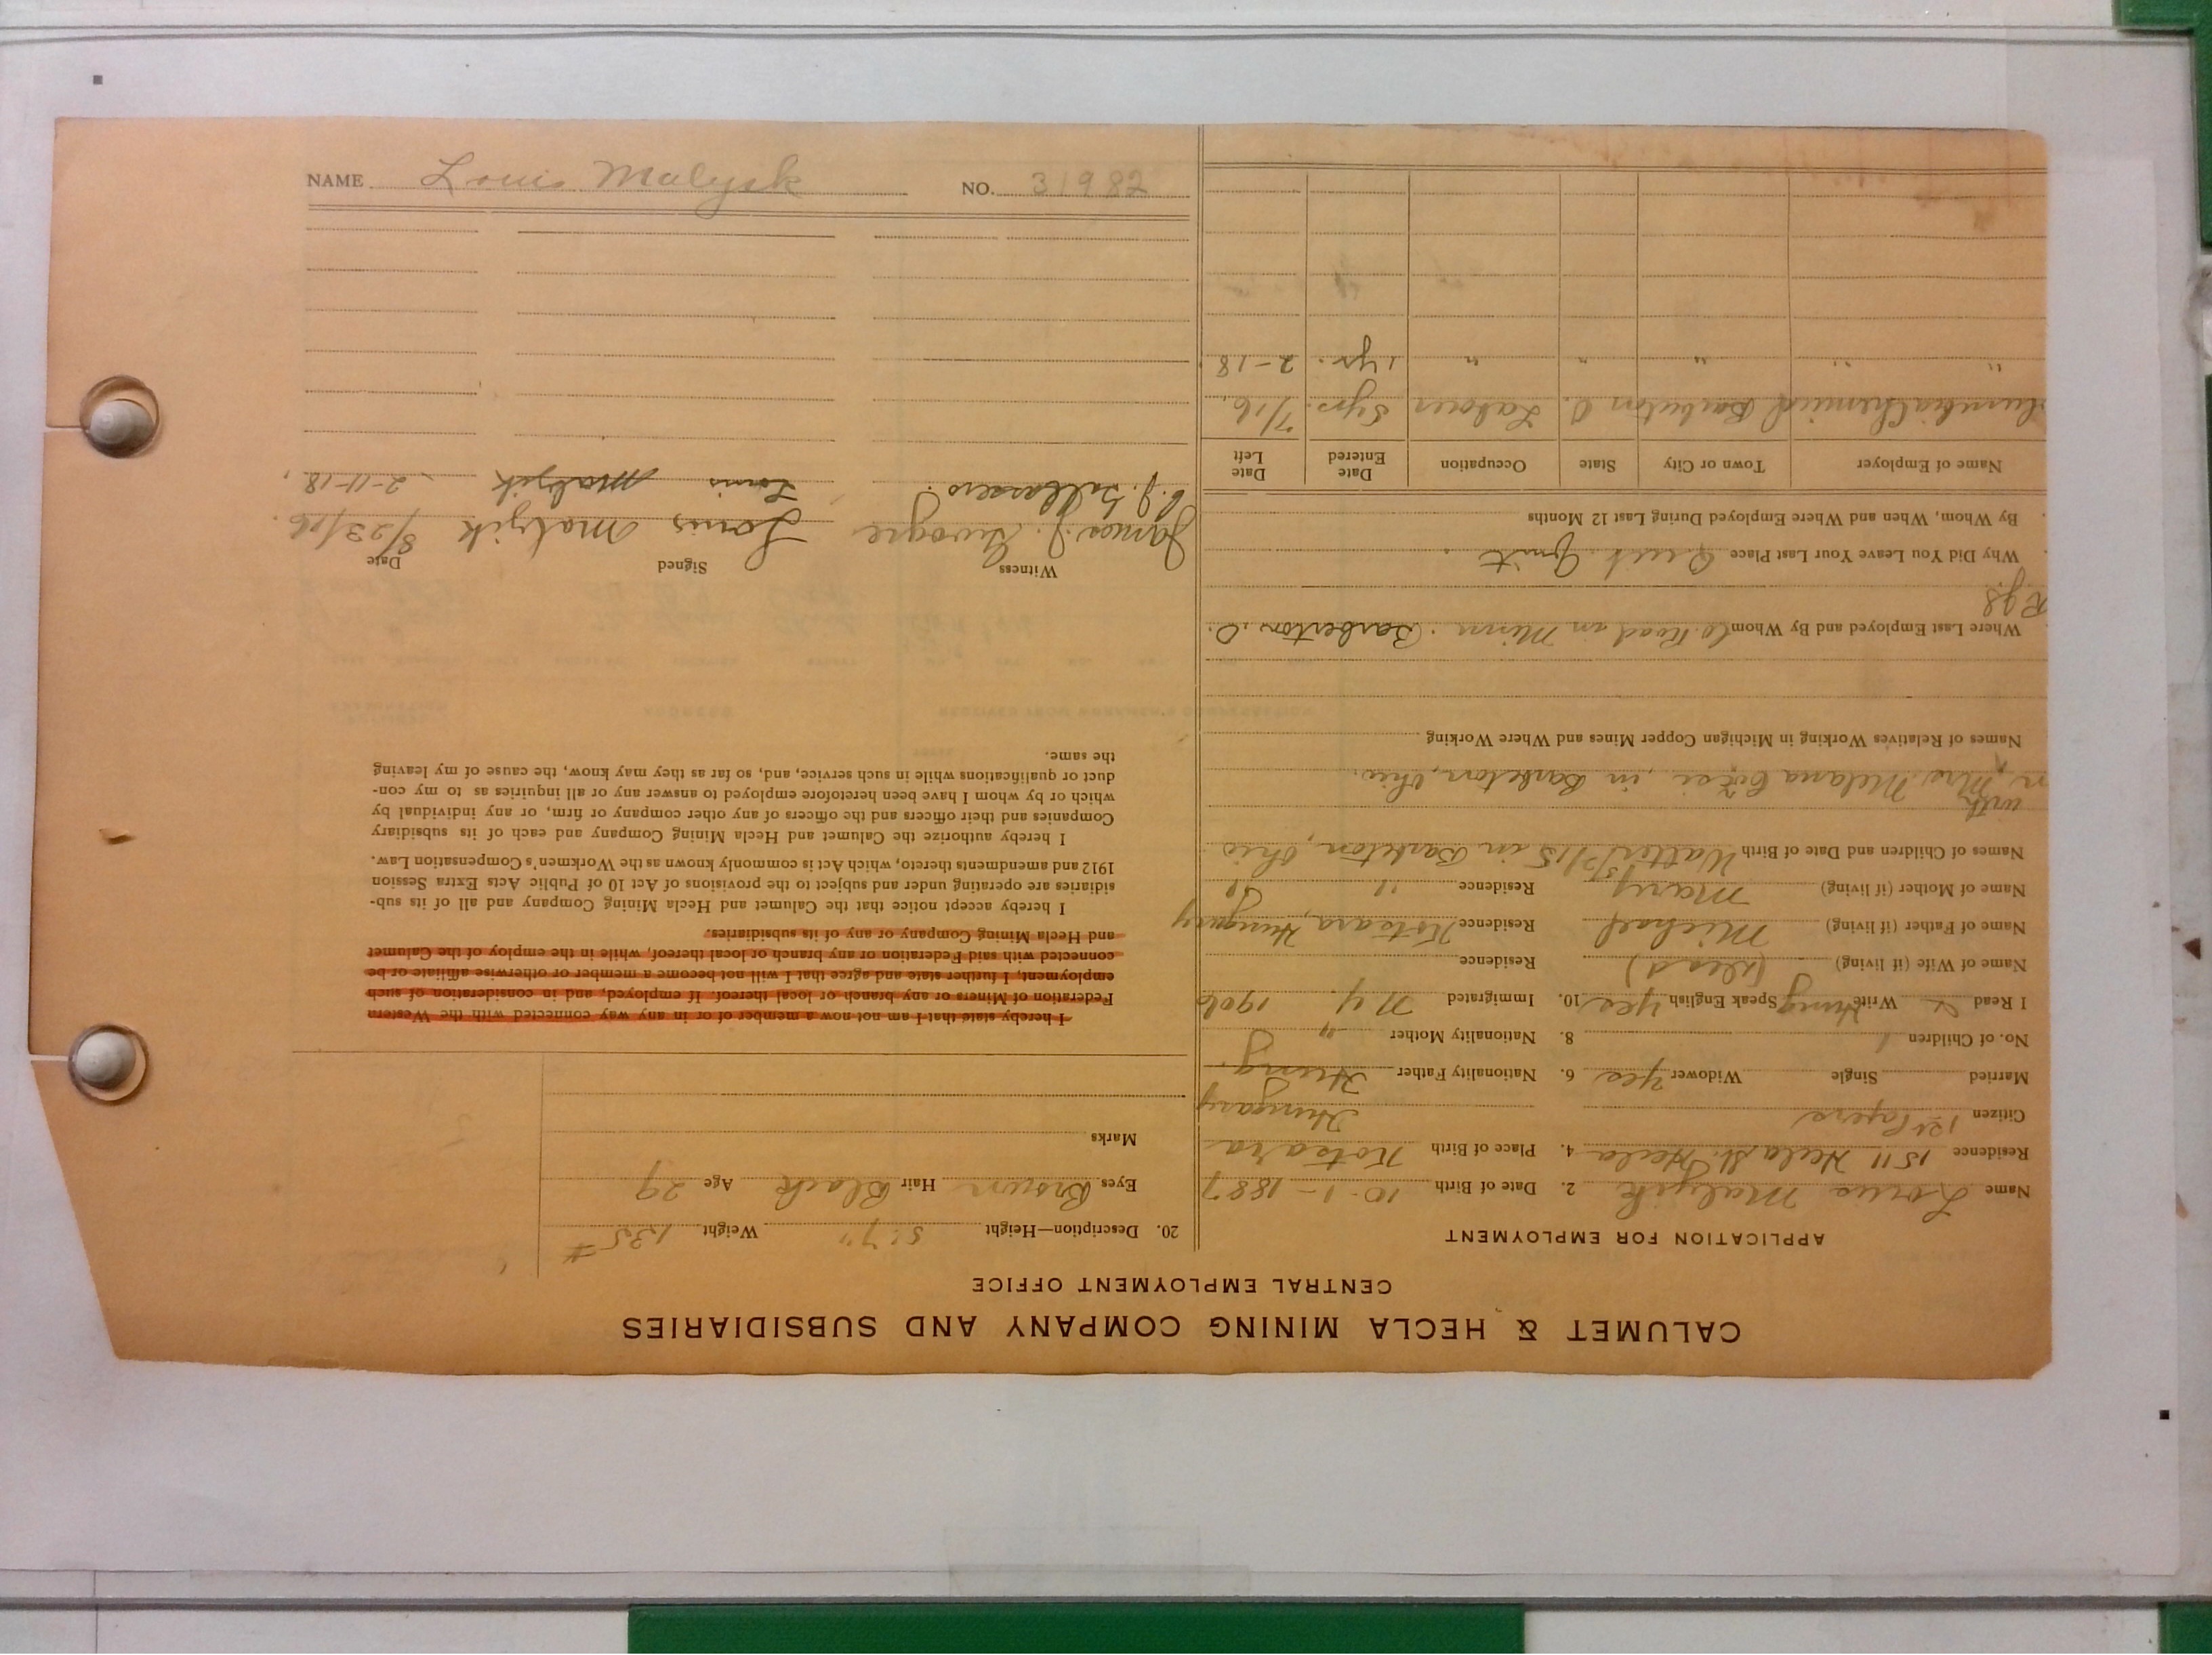 CALUMET & HECLA MINING COMPANY AND SUBSIDIARIES
CENTRAL EMPLOYMENT OFFICE
APPLICATION FOR EMPLOYMENT
Name Louis Malyik 2. Date of Birth 10-1-1887
Residence 1511 Hecla St. Hecla 4. Place of Birth Kotsara
Citizen 1st Papers Hungary
Married Single Widower Yes 6. Nationality Father Hung.
No. of Children 1 8. Nationality Mother "
I Read & Write Hung Speak English yes 10. Immigrated N.Y. 1906
Name of Wife (if living) (dead) Residence
Name of Father (if living) Michael Residence Kotsara, Hungary
Name of Mother (if living) Mary Residence "
Names of Children and Date of Birth Walter in Barberton, Ohio
with Mrs. Melana in Barberton, Ohio.
Names of Relatives Working in Michigan Copper Mines and Where Working
Where Last Employed and By Whom Co. Road in Minn. Barberton. O.
Why Did You Leave Your Last Place Quit Quit
By Whom, When and Where Employed During Last 12 Months
Name of Employer Town or City State Occupation Date Entered Date Left
Chemical Barberton O. Laborer 5yrs. 7/16.
" " " " " 1 yr. 2-18.
20. Description—Height 5:7" Weight 135#
Eyes Brown Hair Black Age 29
Marks
I hereby state that I am not now a member of or in any way connected with the Western
Federation of Miners or any branch or local thereof. If employed, and in consideration of such
employment, I further state and agree that I will not become a member or otherwise affiliate or be
connected with said Federation or any branch or local thereof, while in the employ of the Calumet
and Hecla Mining Company or any of its subsidiaries.
I hereby accept notice that the Calumet and Hecla Mining Company and all of its sub-
sidiaries are operating under and subject to the provisions of Act 10 of Public Acts Extra Session
1912 and amendments thereto, which Act is commonly known as the Workmen's Compensation Law.
I hereby authorize the Calumet and Hecla Mining Company and each of its subsidiary
Companies and their officers and the officers of any other company or firm, or any individual by
which or by whom I have been heretofore employed to answer any or all inquiries as to my con-
duct or qualifications while in such service, and, so far as they may know, the cause of my leaving
the same.
Witness Signed Date
James J. Louis Malyik 8/23/16.
Louis Malyik 2-11-18.
NAME Louis Malysk NO. 31982